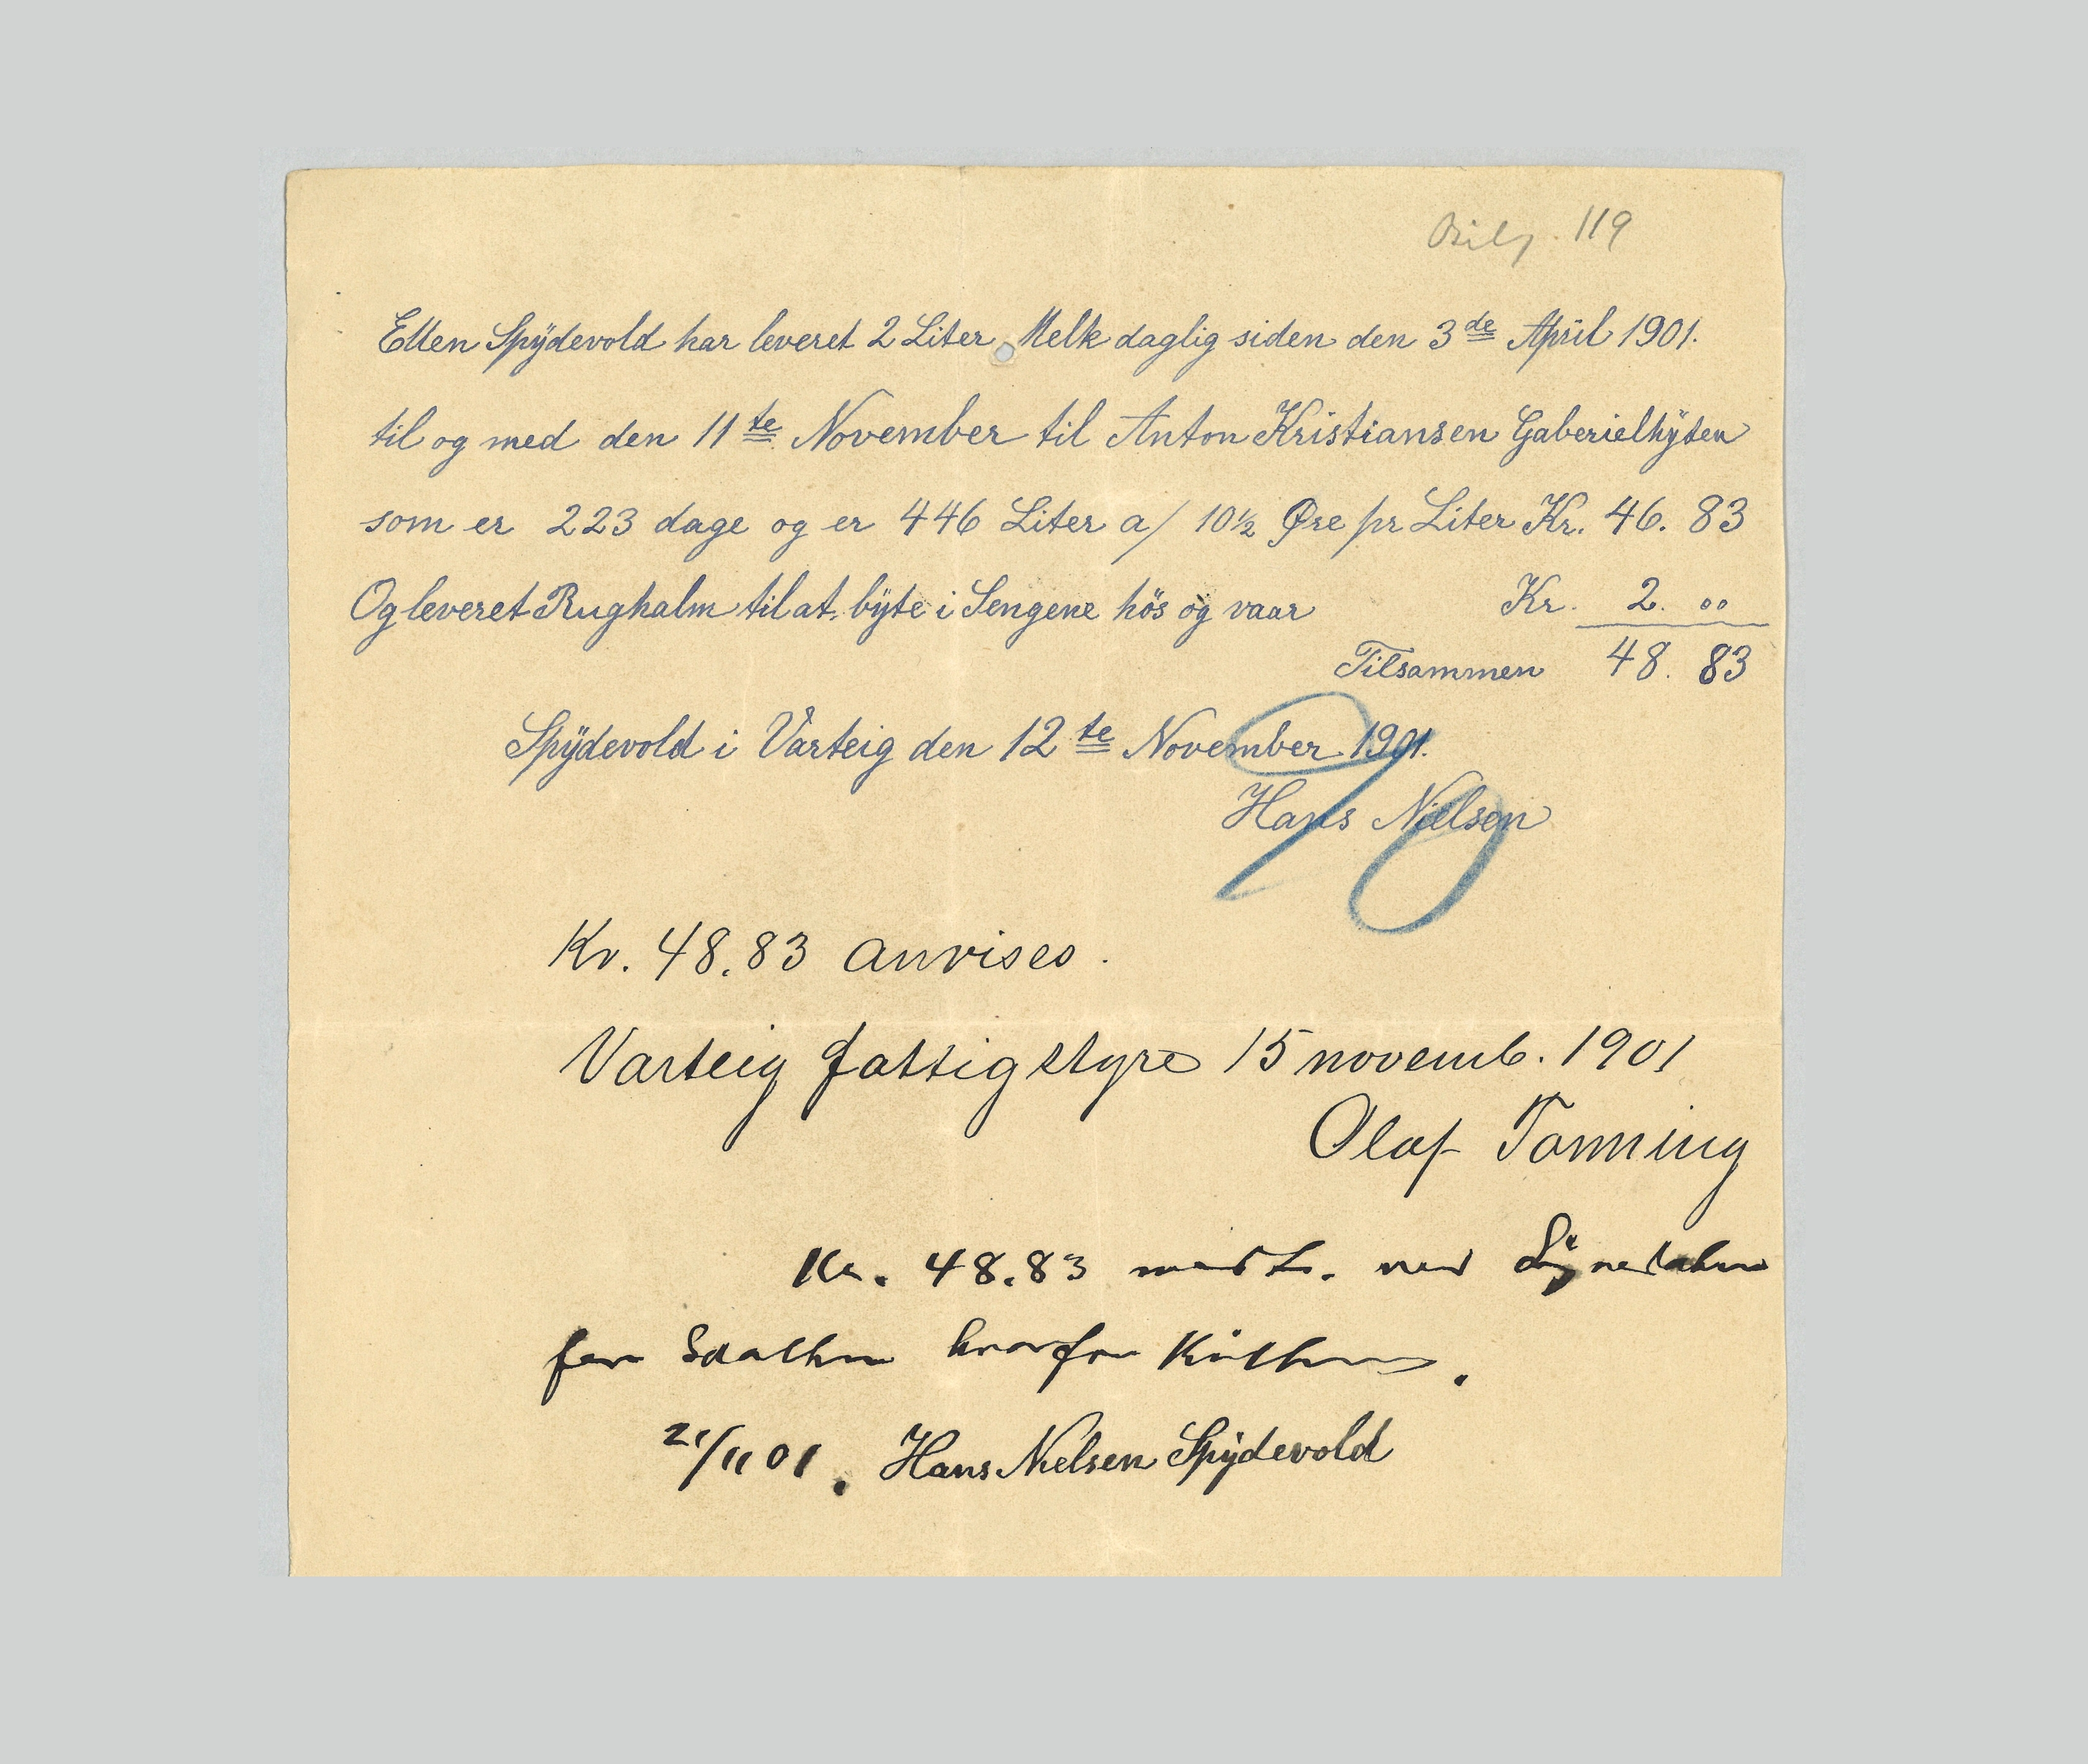 Bilg. 119
Ellen Spÿdevold har leveret 2 Liter Melk daglig siden den 3de April 1901.
til og med den 11te November til Anton Kristiansen Gaberielhÿten
som er 223 dage og er 446 Liter a/ 10½ Øre pr Liter Kr. 46. 83
Og leveret Rughalm til at bÿte i Sengene hös og vaar Kr. 2. 00
Tilsammen 48. 83
Spÿdevold i Varteig den 12te November 1901.
Hans Nielsen
Kr. 48.83 anvises.
Varteig fattigstyre 15 novemb. 1901
Olaf Tanning
Kr. 48.83 ved
for hvorfor Kvitt
21/11 01. Hans Nielsen Spÿdevold